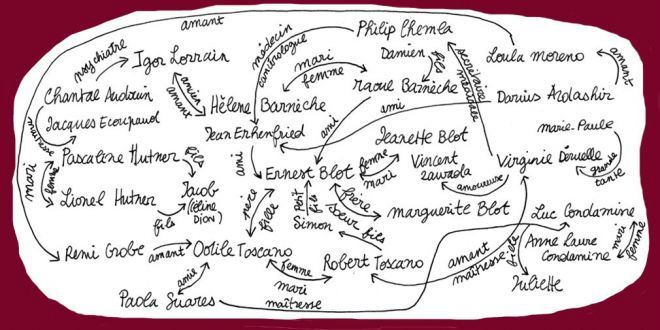 amant
Philip Chemla
psychiatre
Igor Lorrain
médecin
cancérologue
Damien
fils
secrétaire
médicale
Loula moreno
amant
mari
femme
Raoul Barnèche
Darius Ardashir
Chantal Audouin
ancien
amant
Hélène Barnèche
ami
maîtresse
Jacques Ecoupaud
Jean Ehrenfried
ami
marie-Paule
mari
femme
Pascaline Hutner
fils
ami
Jeanette Blot
femme
mari
Vincent
Zawada
Virginie Déruelle
grande
tante
Ernest Blot
amoureuse
Lionel Hutner
fils
Jacob
(Céline
Dion)
père
fille
Petit
fils
frère
sœur
marguerite Blot
Luc Condamine
Simon
fils
Remi Grobe
amant
Odile Toscano
femme
mari
Robert Toscano
amant
maîtresse
fille
Anne Laure
Condamine
mari
femme
amie
Juliette
Paola Suares
maîtresse